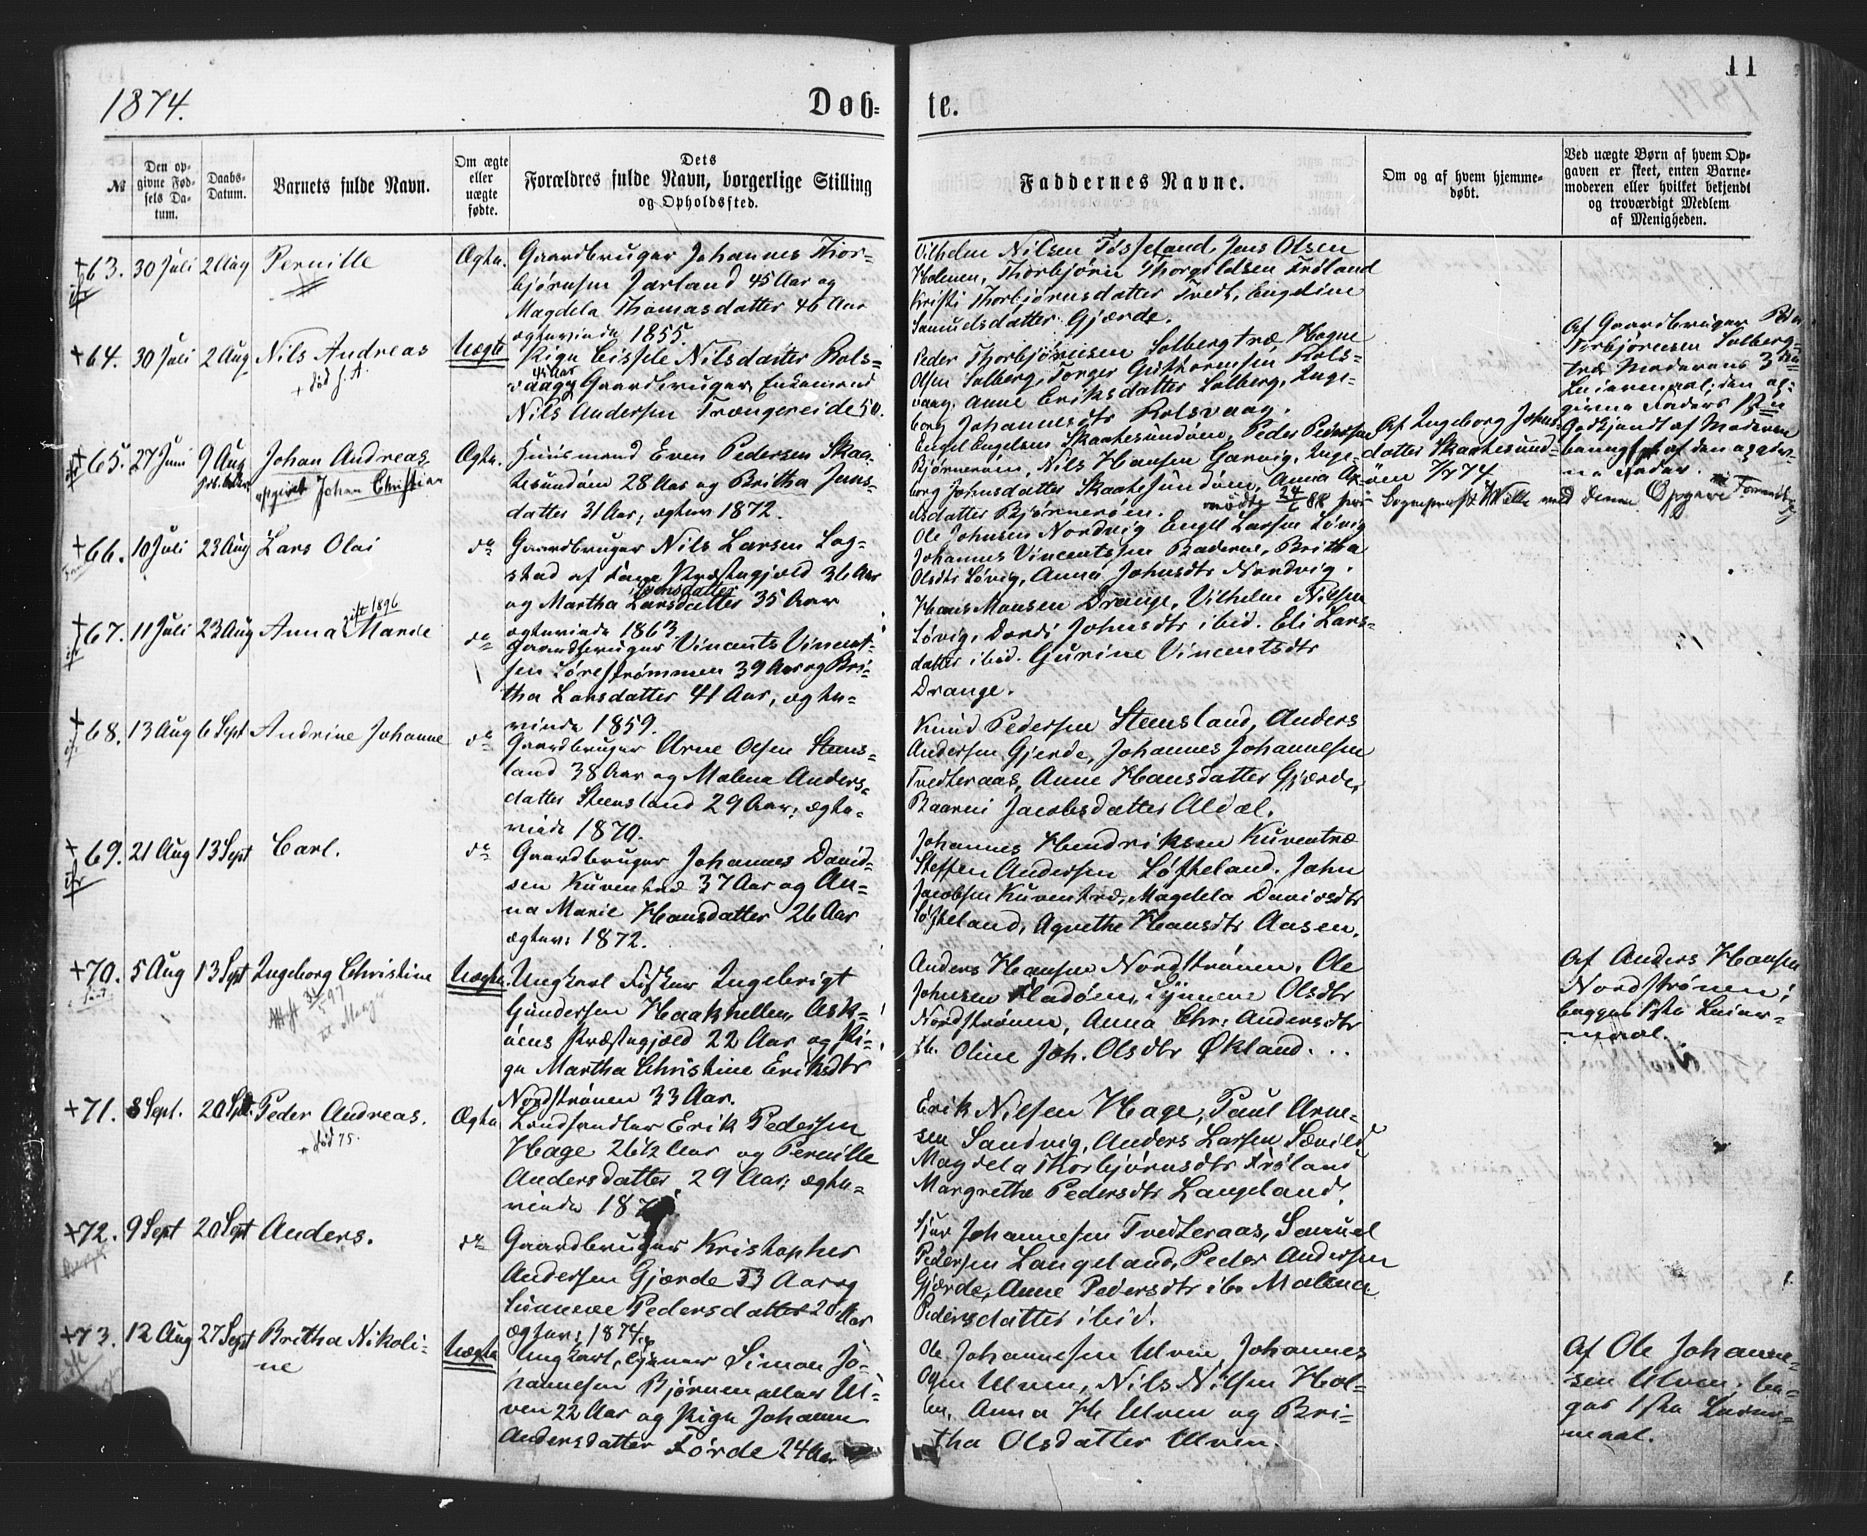 11
1874.
Døb=
te.
№
Den op-
givne Fød-
sels Da-
tum.
Daabs-
Datum.
Barnets fulde Navn.
Om ægte
eller
uægte
fødte.
Dets
Forældres fulde Navn, borgerlige Stilling
og Opholdssted.
Faddernes Navne.
Om og af hvem hjemme-
døbt.
Ved uægte Børn af hvem Op-
gaven er skeet, enten Barne-
moderen eller hvilket bekjendt
og troværdigt Medlem
af Menigheden.
63. 30 Juli 2 Aug Pernille Ægte.
Gaardbruger Johannes Thor-
bjørnsen Jarland 45 Aar og
Magdela Thomasdatter 46 Aar
ægteviede 1855.
Vilhelm Nilsen Tøsseland, Jens Olsen
Holmen, Thorbjørn Thorgildsen Frøland
Kristi Thorbjørnsdatter Tvedt, Engeline
Samuelsdatter Gjærde.
64. 30 Juli 2 Aug Nils Andreas Uægte
+ død s. A.
Pige Cissele Nilsdatter Rols-
45 Aar
vaag, Gaardbruger, Enkemand
Nils Andersen Trængereide 50.
Peder Thorbjørnsen Solbergtræ Hogne
Olsen Solberg, Torger Guthormsen Rols-
vaag, Anne Eriksdatter Solberg, Inge-
borg Johannesdtr Rolsvaag.
Af Gaardbruger Peder
Torbjørnsen Solberg-
træ Moderens 3die
Leiermaal; den op-
givne Faders 1ste
Godkjendt af Moderen
65. 27 Juni 9 Aug Johan Andreas Ægte.
opgivet Johan Christian
Huusmand Even Pedersen Skaa-
tesundøen 28 Aar og Britha Jens-
datter 31 Aar; ægtev. 1872.
Engel Engelsen Skaatesundøen, Peder Pedersen
Bjørnerøen, Nils Hansen Garvig, Inge-
borg Johnsdatter Skaatesundøen, Anna
datter Bjørnerøen.
Af Ingeborg Johns-
datter Skaatesund-
øen 7/7 74.
Sognepræst Wille med denne Opgave
66. 10 Juli 23 Aug Lars Olai do
Gaardbruger Nils Larsen Log-
stad af Fane Præstegjeld 36 Aar
og Martha Larsdatter 35 Aar
ægteviede 1863.
Ole Johnsen Nordvig Engel Larsen Løvig
Johannes Vincentssen Baderne, Britha
Olsdtr Løvig, Anna Johnsdtr Nordvig.
67. 11 Juli 23 Aug Anna Marie do
gift 1896
Gaardbruger Vincents Vincent-
sen Sørestrømmen 39 Aar og Bri-
tha Larsdatter 41 Aar, ægte-
viede 1859.
Hans Monsen Drange, Vilhelm Nilsen
Løvig, Dordi Johnsdtr ibid. Eli Lars-
datter ibid. Gurine Vincentsdtr
Drange.
68. 13 Aug 6 Sept Andrine Johanne do
Gaardbruger Arne Olsen Steens-
land 38 Aar og Malena Anders-
datter Steensland 29 Aar; ægte-
viede 1870.
Knud Pedersen Steensland, Anders
Andersen Gjerde, Johannes Johannesen
Tvedteraas, Anne Hansdatter Gjærde,
Baarni Jacobsdatter Aldal.
69. 21 Aug 13 Sept Carl. do
Gaardbruger Johannes David-
sen Kuventræ 37 Aar og An-
na Marie Hansdatter 26 Aar
ægtev: 1872.
Johannes Hendriksen Kuventræ
Steffen Andersen Løfteland. John
Jacobsen Kuventræ, Magdela Davidsdtr
Løfteland, Agnethe Hansdtr Aasen.
70. 5 Aug 13 Sept Ingeborg Christine Uægte.
Ungkarl Fisker Ingebrigt
Gundersen Haakhellen, Ask-
øens Præstegjeld 22 Aar og Pi-
ge Martha Christine Eriksdtr
Nordstrønen 33 Aar.
Anders Hansen Nordstrønen, Ole
Johnsen Fladøen, Synneve Olsdtr
Nordstrønen, Anna Chr: Andersdtr
ib. Oline Joh. Olsdtr Økland.
Af Anders Hansen
Nordstrønen;
begges 1ste Leier-
maal.
71. 8 Sept. 20 Spt. Peder Andreas. Ægte.
+ død 75.
Landhandler Erik Pedersen
Hage 26½ Aar og Pernille
Andersdatter 29 Aar; ægte-
viede 187
Erik Nilsen Hage, Paul Arne-
sen Sandvig, Anders Larsen Sævild
Magdela Thorbjørnsdtr Frøland
Margrethe Pedersdtr Langeland.
72. 9 Sept 20 Sept Anders. do
Gaardbruger Kristopher
Andersen Gjærde 33 Aar og
Sunneve Pedersdatter 20 Aar
ægtev: 1874.
Sjur Johannesen Tvedteraas, Samuel
Pedersen Langeland, Peder Andersen
Gjærde, Anne Pedersdtr ib. Malena
Pedersdatter ibid.
73. 12 Aug 27 Sept Britha Nikoli-
ne Uægte
Ungkarl, Tjener Simon Jo-
hannesen Bjørnen eller Ul-
ven 22 Aar og Pige Johanne
Andersdatter Førde 24 Aar
Ole Johannesen Ulven Johannes
Olsen Ulven, Nils Nilsen Hol-
Anna H Ulven og Bri-
tha Olsdatter Ulven
Af Ole Johanne-
sen Ulven; be-
ges 1ste Leier-
maal.